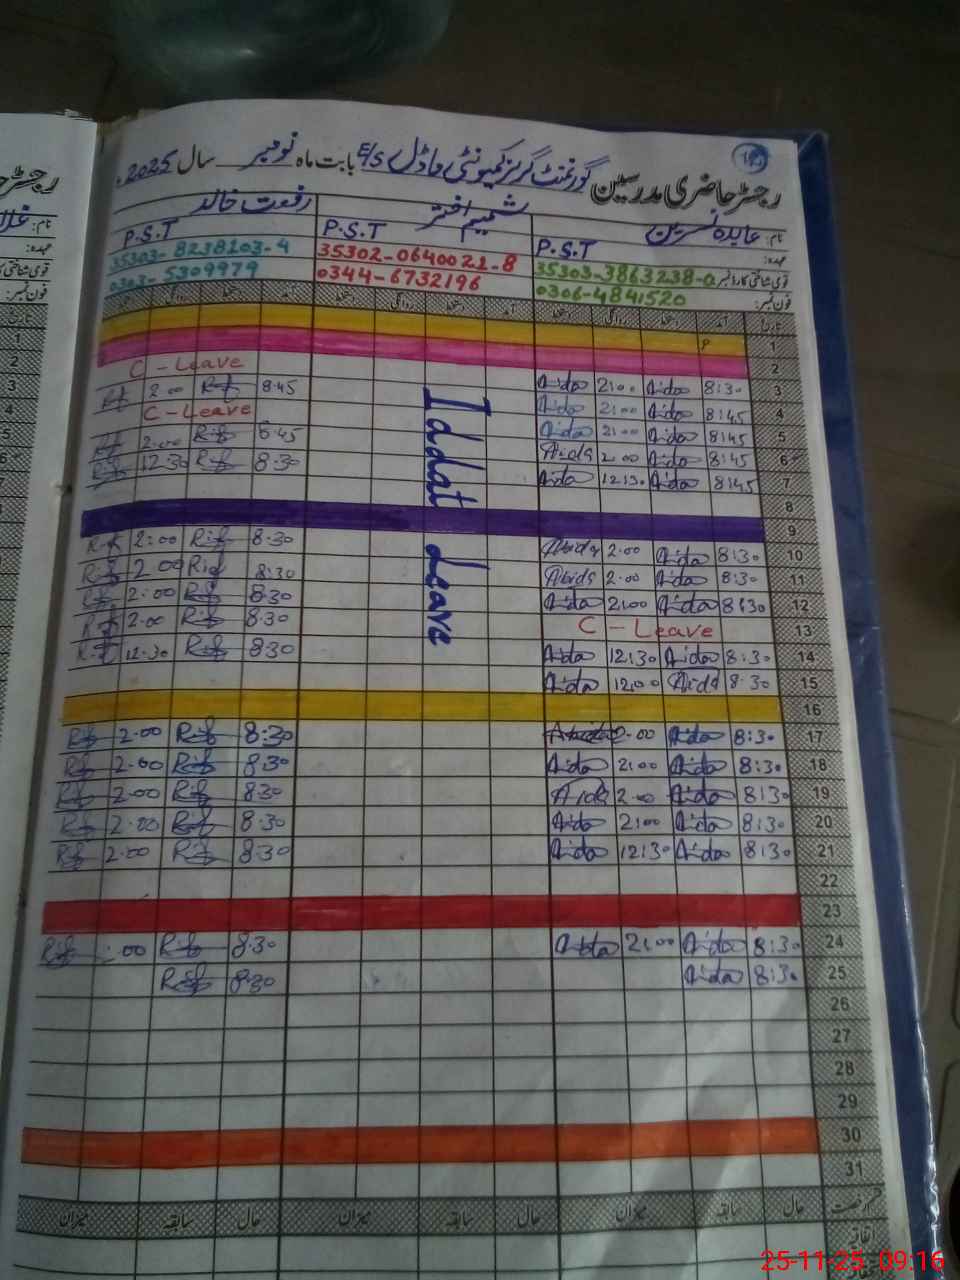 رجسٹر حاضری مدرسین گورنمنٹ گرلز کمیونٹی ماڈل E/S بابت ماہ نومبر سال 2025
نام: عابدہ نسرین شمیم اختر رفعت خالد
عہدہ: P.S.T P.S.T P.S.T
قومی شناختی کارڈ نمبر 35303-3863238-0 35302-0640021-8 35303-8238103-4
فون نمبر: 0306-4841520 0344-6732196 0303-5309979
تاریخ آمد دستخط روانگی دستخط آمد دستخط روانگی دستخط آمد دستخط روانگی دستخط
1
2
C-Leave
3 8:30 Aida 2:00 Aida 8:45 Rif 2:00 Rif
C-Leave
4 8:45 Aida 2:00 Aida
5 8:45 Aida 2:00 Aida 8:45 Rif 2:00 Rif
6 8:45 Aida 2:00 Aida 8:30 Rif 12:30 Rif
7 8:45 Aida 12:30 Aida
Iddat Leave
8
9
10 8:30 Aida 2:00 Abida 8:30 Rif 2:00 Rif
11 8:30 Aida 2:00 Abida 8:30 Rif 2:00 Rif
12 8:30 Aida 2:00 Aida 8:30 Rif 2:00 Rif
13 C-Leave 8:30 Rif 2:00 Rif
14 8:30 Aida 12:30 Aida 8:30 Rif 12:30 Rif
15 8:30 Aida 12:00 Aida
16
17 8:30 Aida 2:00 8:30 Rif 2:00 Rif
18 8:30 Aida 2:00 Aida 8:30 Rif 2:00 Rif
19 8:30 Aida 2:00 Aida 8:30 Rif 2:00 Rif
20 8:30 Aida 2:00 Aida 8:30 Rif 2:00 Rif
21 8:30 Aida 12:30 Aida 8:30 Rif 2:00 Rif
22
23
24 8:30 Aida 2:00 Aida 8:30 Rif :00 Rif
25 8:30 Aida 8:30 Rif
26
27
28
29
30
31
قسم رخصت حال سابقہ میزان حال سابقہ میزان حال سابقہ میزان
اتفاقیہ
25-11-25 09:16